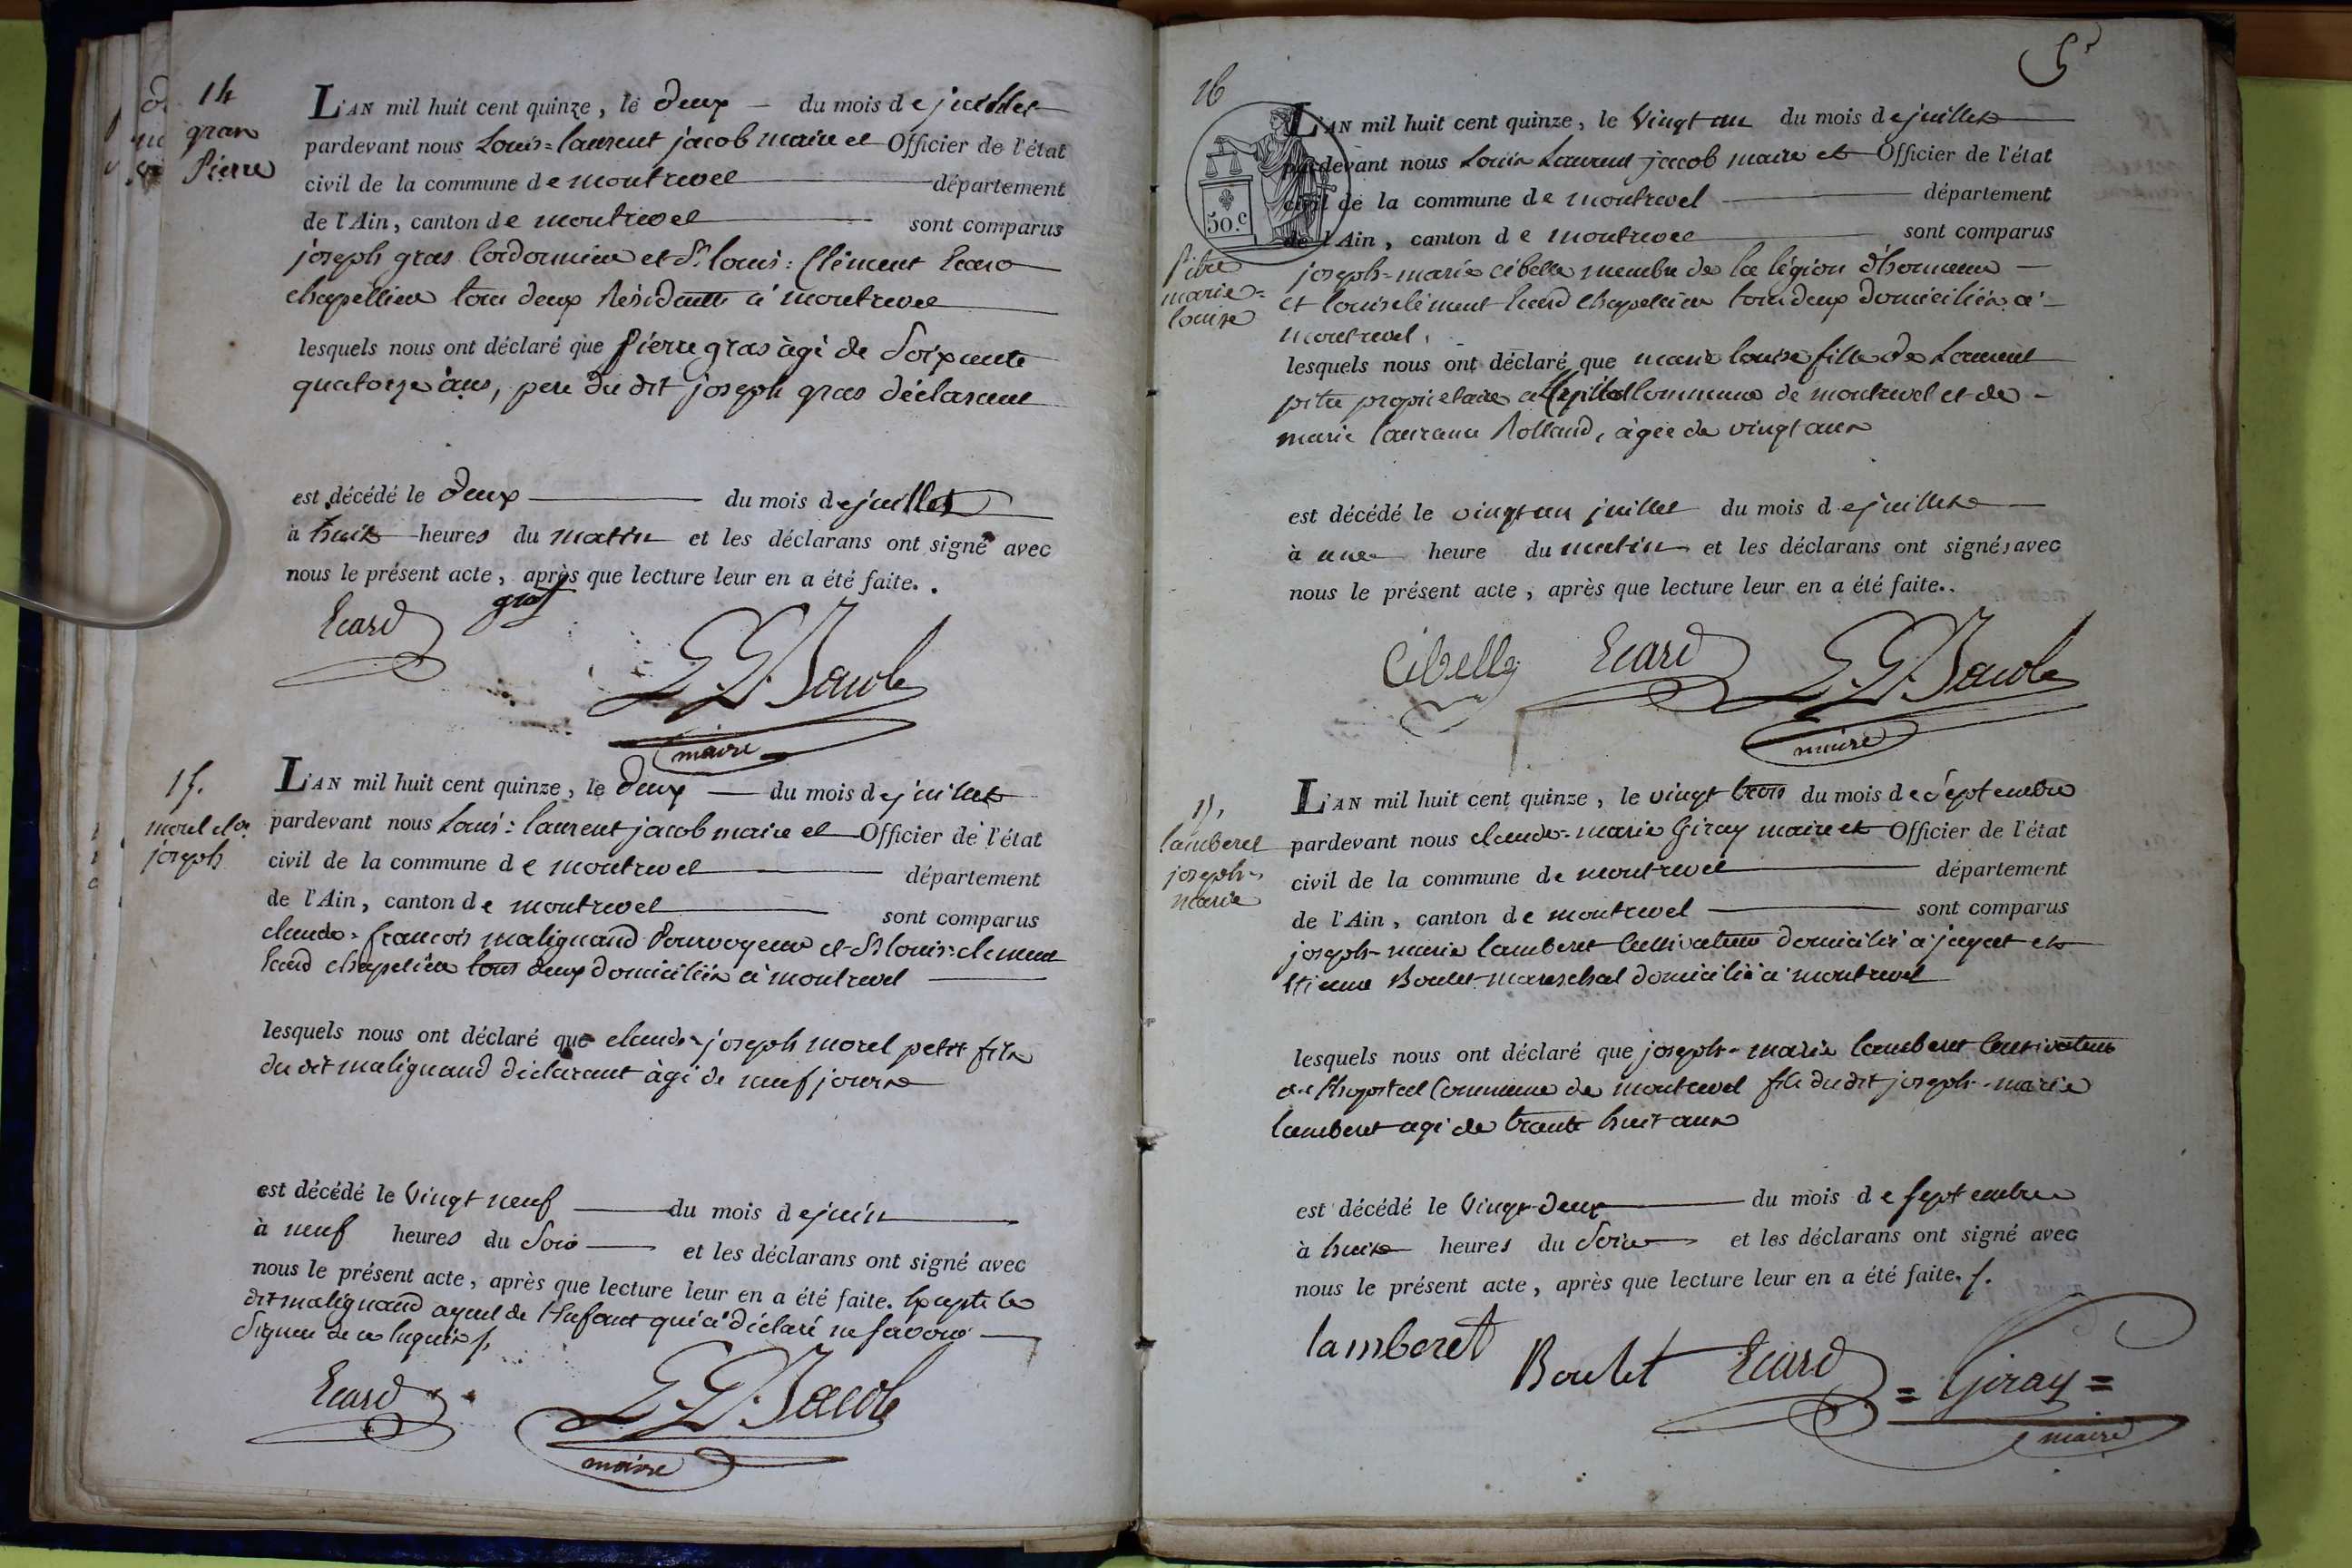 14
gras
Pierre
L'AN mil huit cent quinze, le deux — du mois de juillet
pardevant nous Louis=laurent jacob maire et Officier de l'état
civil de la commune de montrevel département
de l'Ain, canton de montrevel sont comparus
joseph gras Cordonnier et Sr. louis: Clément Ecard
chapellier tous deux Résidants à montrevel
lesquels nous ont déclaré que Pierre gras âgé de Soixante
quatorze ans, pere du dit joseph gras déclarant
est décédé le deux du mois de juillet
à huit heures du matin et les déclarans ont signé avec
nous le présent acte, après que lecture leur en a été faite..
Ecard gras
L. L. Jacob
maire
15.
morel cl.de
joseph
L'AN mil huit cent quinze, le deux — du mois de juillet
pardevant nous Louis: laurent jacob maire et Officier de l'état
civil de la commune de montrevel département
de l'Ain, canton de montrevel sont comparus
claude=francois malignand Pourvoyeur et Sr louis: clement
Ecard chapelier tous deux domiciliés à montrevel
lesquels nous ont déclaré que claude joseph morel petit fils
du dit malignand déclarant âgé de neuf jours
est décédé le vingt neuf du mois de juin
à neuf heures du Soir et les déclarans ont signé avec
nous le présent acte, après que lecture leur en a été faite. Excepté le
dit malignand ayeul de l'Enfant qui a déclaré ne savoir
Signer de ce Enquis
Ecard
L. L. Jacob
maire
5
16
50.c
Pitre
marie=
louise
L'AN mil huit cent quinze, le vingt un du mois de juillet
pardevant nous Louis Laurent jacob maire et Officier de l'état
civil de la commune de montrevel département
de l'Ain, canton de montrevel sont comparus
joseph=marie cibelle membre de la légion d'honneur —
et louis clément Ecard chapellier tous deux domiciliés à —
montrevel.
lesquels nous ont déclaré que marie louise fille de Laurent
pitre propriétaire à l'hopital Commune de montrevel et de —
marie Rolland, âgée de vingt ans
est décédé le vingt un juillet du mois de juillet
à une heure du matin et les déclarans ont signés avec
nous le présent acte, après que lecture leur en a été faite..
Cibelle Ecard L. L. Jacob
maire
17,
lamberet
joseph=
marie
L'AN mil huit cent quinze, le vingt trois du mois de septembre
pardevant nous claude=marie Giray maire et Officier de l'état
civil de la commune de montrevel département
de l'Ain, canton de montrevel sont comparus
joseph=marie lamberet Cultivateur domicilié à jayat et
Etienne Boulet mareschal domicilié à montrevel
lesquels nous ont déclaré que joseph=marie lamberet Cultivateur
à l'hopital Commune de montrevel fils du dit joseph=marie
lamberet agé de trante huit ans
est décédé le vingt-deux du mois de septembre
à huit heures du Soir et les déclarans ont signé avec
nous le présent acte, après que lecture leur en a été faite./.
lamberet Boulet Ecard = Giray =
maire